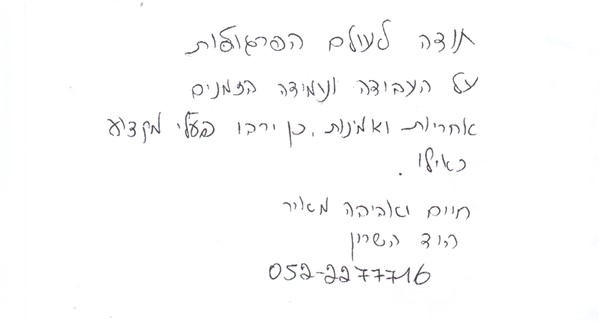 תודה לעולם הפרגולות
על העבודה ועמידה הזמנים
אחריות ואמינות. כן ירבו בעלי מקצוע
כאילו.
חיים ואביבה מאיר
הוד השרון
052-2277716